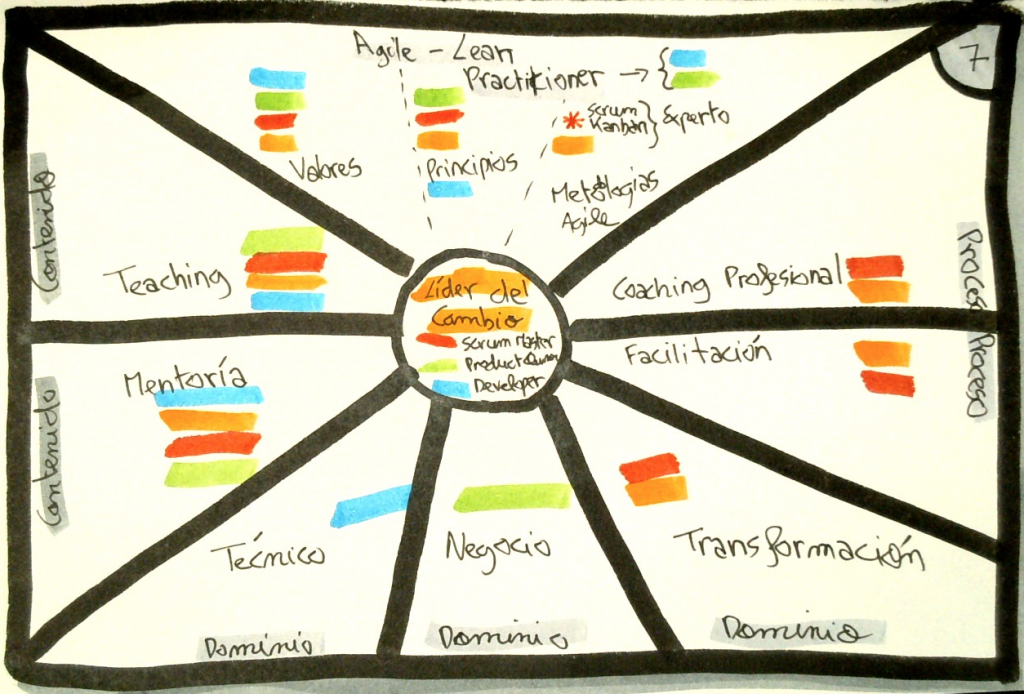 7
Agile - Lean
Practitioner →
* Scrum
Kanban
Experto
Valores
Principios
Metologias
Agile
Contenido
Teaching
Líder del
Cambio
Scrum Master
Product Owner
Developer
Coaching Profesional
Proceso
Facilitación
Proceso
Mentoría
Contenido
Técnico
Negocio
Transformación
Dominio
Dominio
Dominio